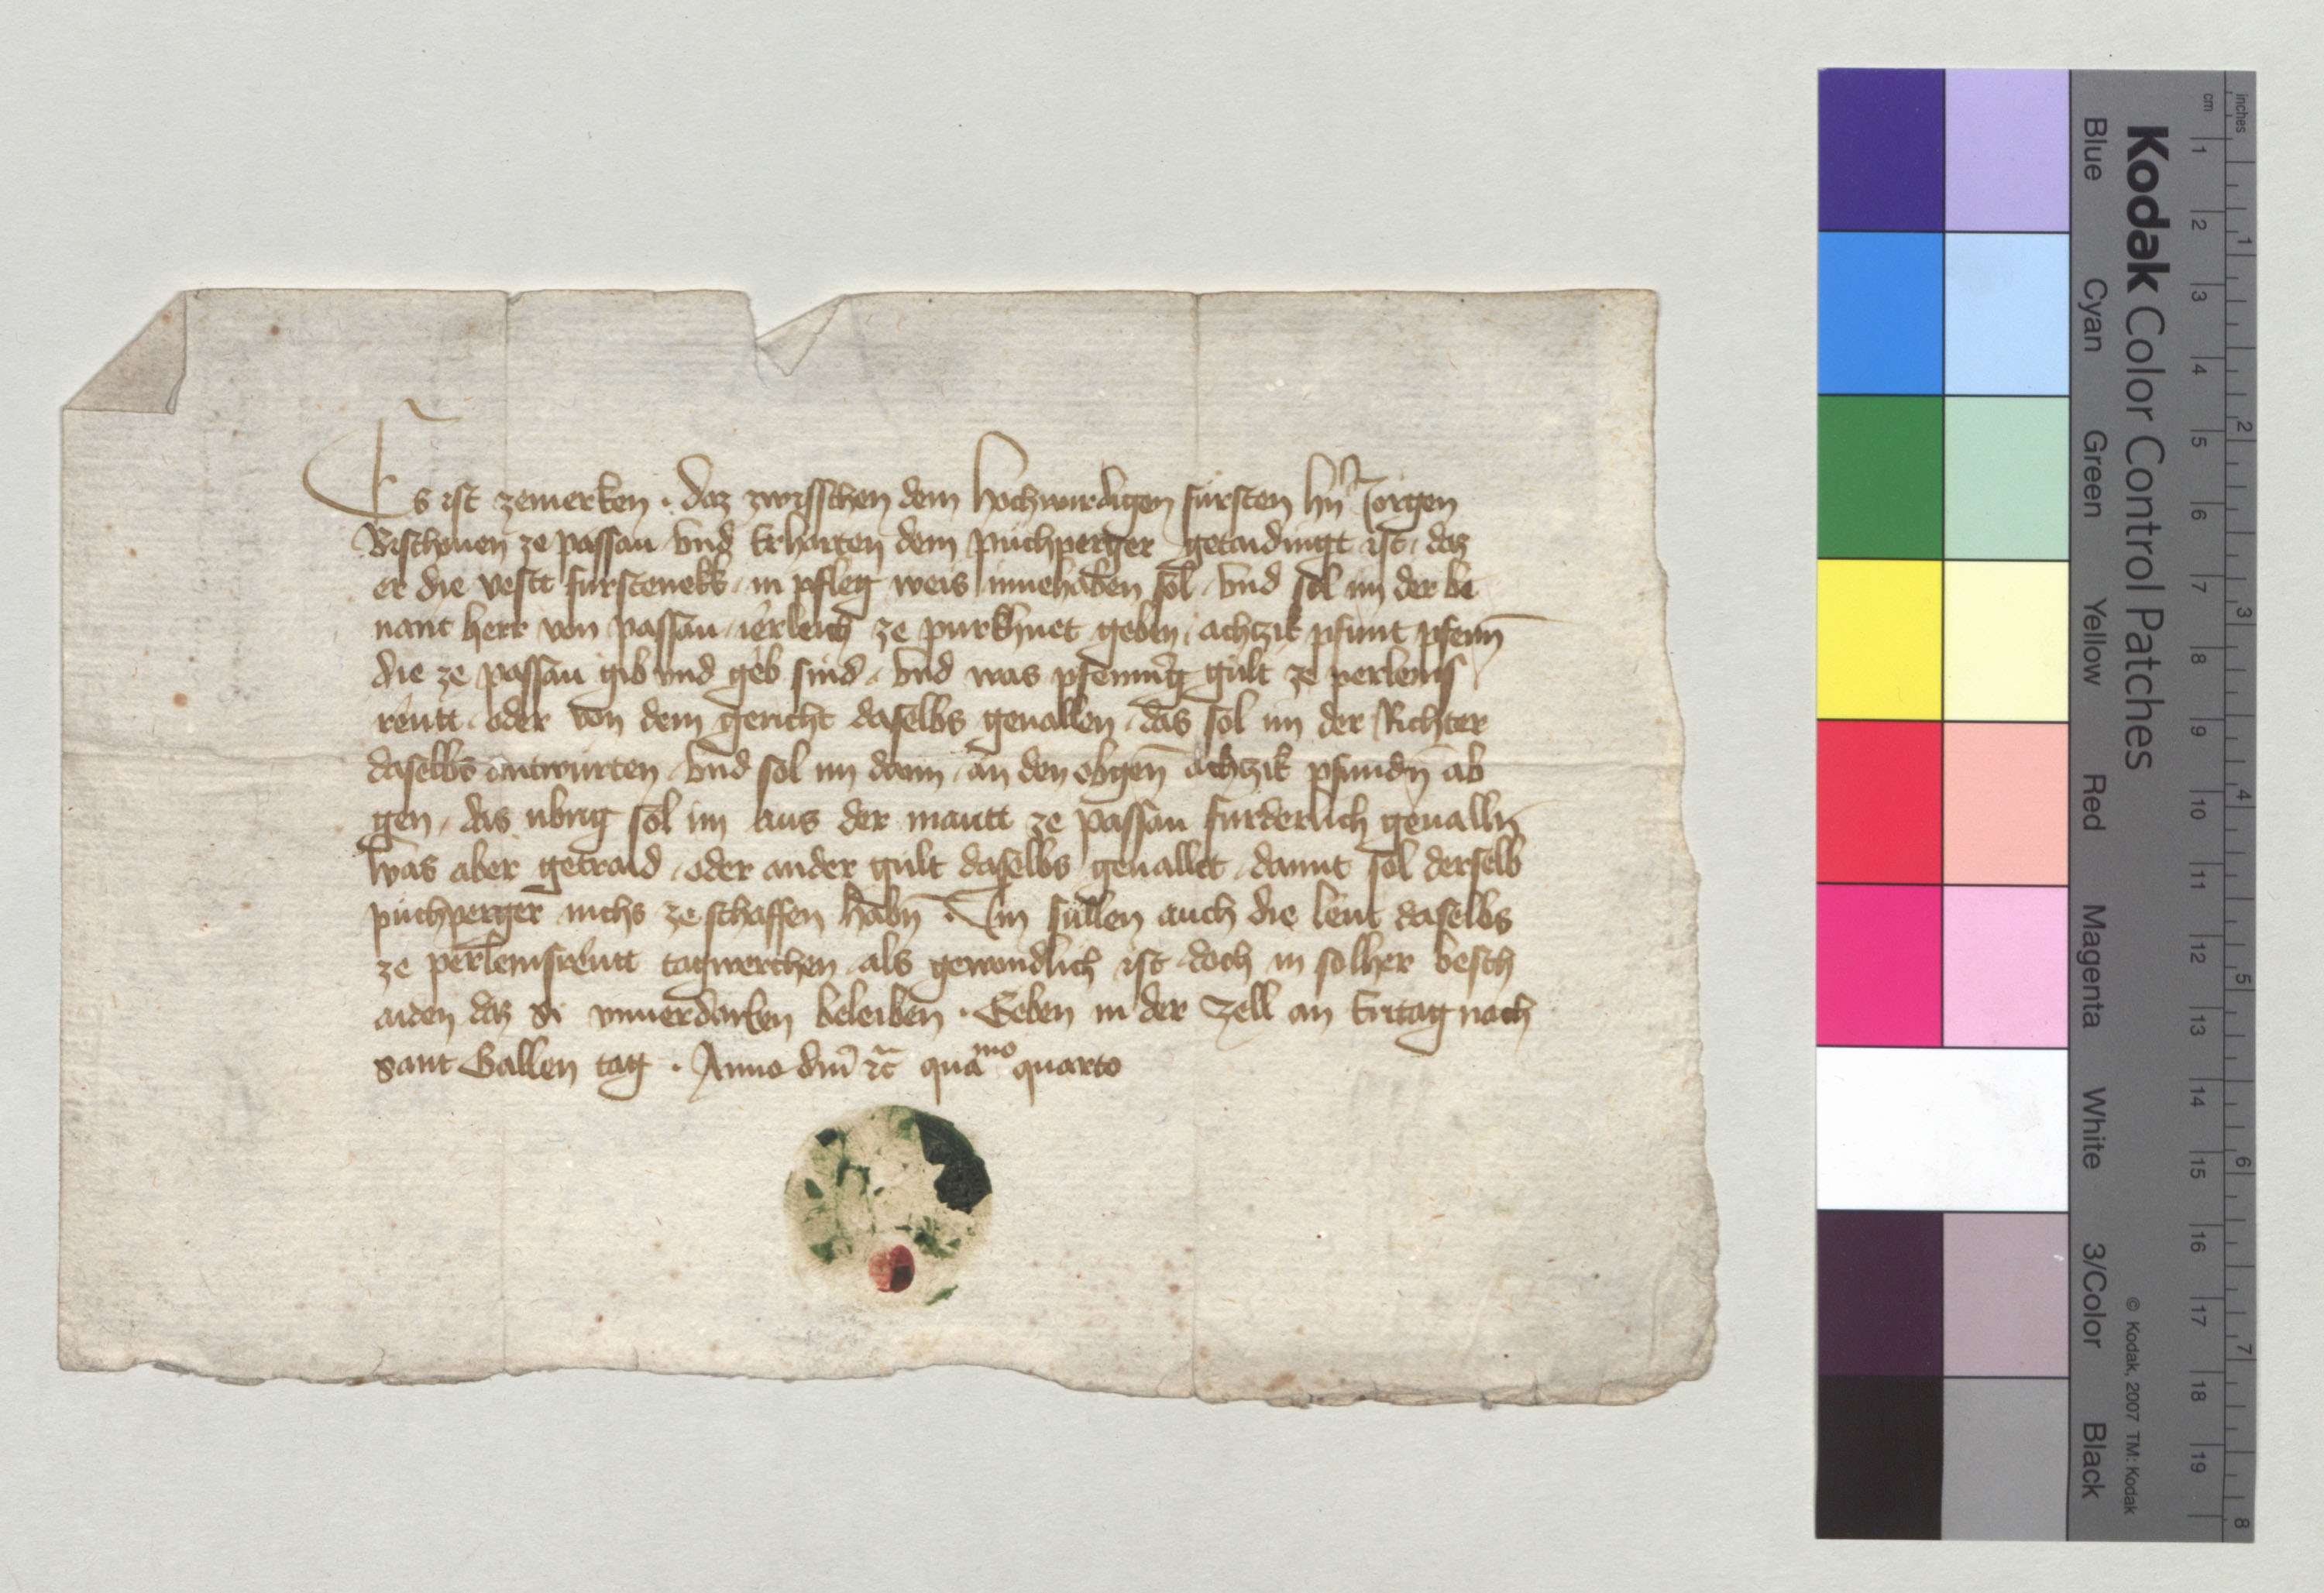 Es ist zemerken · daz zwisschen dem hochwirdigen fürsten hn̄ Jorgen
Bischouen ze passau vnd Erharten dem püchperger getaidingt ist, daz
er die vestt fürstenekk, in pfleg weis innehaben sol, vnd sol im der be
nant herr von passau, ierleich ze purkhuet geben, achtzik pfunt pfenn̄
die ze passau gib vnd geb sind, vnd was pfenning gült ze perleins
reutt, oder von dem gericht daselbs geuallen, das sol im der Richter
daselbs antwurten, vnd sol im dann, an den obgen̄ achtzik pfundn̄ ab
gen, das übrig sol im aus der mautt ze passau fürderlich geualln̄
was aber getraid, oder ander gült daselbs geuallet, damit sol derselb
püchperger nichs ze schaffen habn̄ · Im süllen auch die leut daselbs
ze perleinsreutt tagwerchen, als gewondlich ist, doch in solher besch
aiden daz si vnuerdarben beleiben · Geben in der Zell an Eritag nach
sant Gallen tag · Anno dm̄ rc̄ quamo quarto
Kodak Color Control Patches
Blue Cyan Green Yellow Red Magenta White 3/Color Black
© Kodak, 2007 TM: Kodak
cm 1 2 3 4 5 6 7 8 9 10 11 12 13 14 15 16 17 18 19
inches 1 2 3 4 5 6 7 8